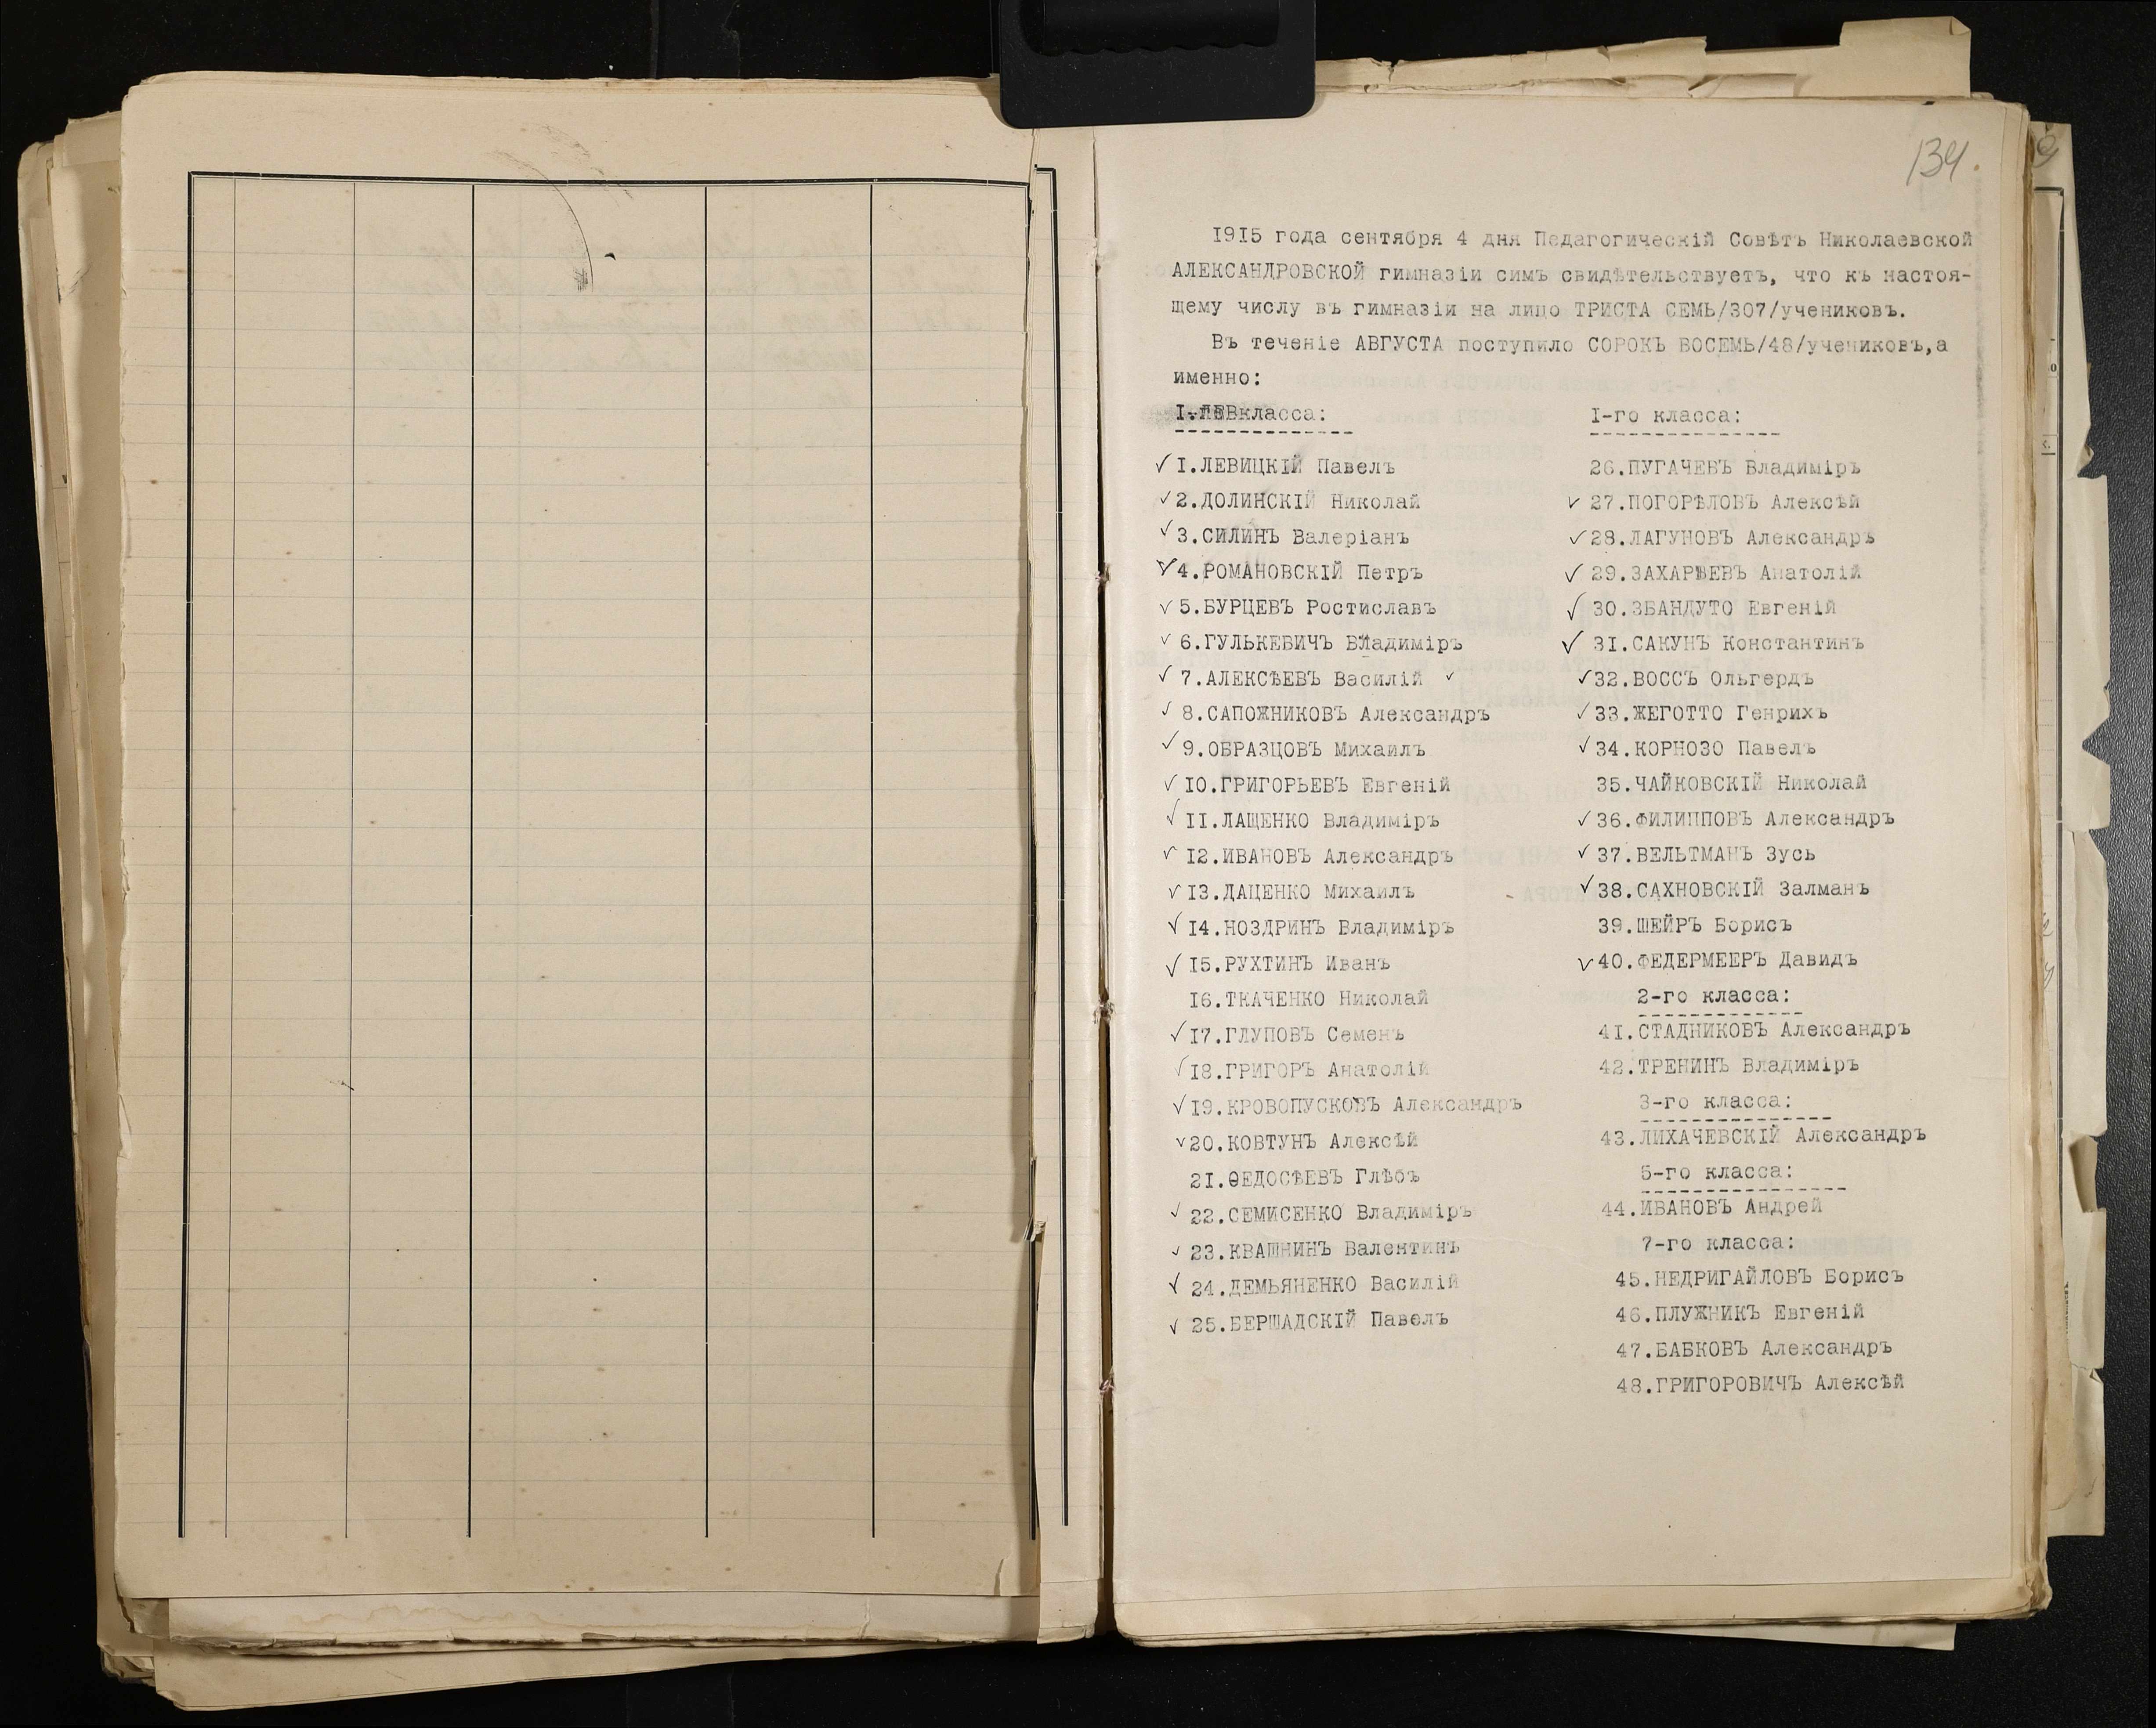 134.
I9I5 года сентября 4 дня Педагогическій Совѣтъ Николаевской
АЛЕКСАНДРОВСКОЙ гимназіи симъ свидѣтельствуетъ, что къ настоя-
щему числу въ гимназіи на лицо ТРИСТА СЕМЬ/307/учениковъ.
Въ теченіе АВГУСТА поступило СОРОКЪ ВОСЕМЬ/48/учениковъ,а
именно:
класса:
✓ I.ЛЕВИЦКІЙ Павелъ
✓ 2.ДОЛИНСКІЙ Николай
✓ 3.СИЛИНЪ Валеріанъ
✓ 4.РОМАНОВСКІЙ Петръ
✓ 5.БУРЦЕВЪ Ростиславъ
✓ 6.ГУЛЬКЕВИЧЪ Владиміръ
✓ 7.АЛЕКСѢЕВЪ Василій ✓
✓ 8.САПОЖНИКОВЪ Александръ
✓ 9.ОБРАЗЦОВЪ Михаилъ
✓ I0.ГРИГОРЬЕВЪ Евгеній
✓ II.ЛАЩЕНКО Владиміръ
✓ I2.ИВАНОВЪ Александръ
✓ I3.ДАЦЕНКО Михаилъ
✓ I4.НОЗДРИНЪ Владиміръ
✓ I5.РУХТИНЪ Иванъ
I6.ТКАЧЕНКО Николай
✓ I7.ГЛУПОВЪ Семенъ
✓ I8.ГРИГОРЪ Анатолій
✓ I9.КРОВОПУСКОВЪ Александръ
✓ 20.КОВТУНЪ Алексѣй
2I.ѲЕДОСѢЕВЪ Глѣбъ
✓ 22.СЕМИСЕНКО Владиміръ
✓ 23.КВАШНИНЪ Валентинъ
✓ 24.ДЕМЬЯНЕНКО Василій
✓ 25.БЕРШАДСКІЙ Павелъ
I-го класса:
26.ПУГАЧЕВЪ Владиміръ
✓ 27.ПОГОРѢЛОВЪ Алексѣй
✓ 28.ЛАГУНОВЪ Александръ
✓ 29.ЗАХАРЬЕВЪ Анатолій
✓ 30.ЗБАНДУТО Евгеній
✓ 3I.САКУНЪ Константинъ
✓ 32.ВОССЪ Ольгердъ
✓ 33.ЖЕГОТТО Генрихъ
✓ 34.КОРНОЗО Павелъ
35.ЧАЙКОВСКІЙ Николай
✓ 36.ФИЛИППОВЪ Александръ
✓ 37.ВЕЛЬТМАНЪ Зусь
✓ 38.САХНОВСКІЙ Залманъ
39.ШЕЙРЪ Борисъ
✓ 40.ФЕДЕРМЕЕРЪ Давидъ
2-го класса:
4I.СТАДНИКОВЪ Александръ
42.ТРЕНИНЪ Владиміръ
3-го класса:
43.ЛИХАЧЕВСКІЙ Александръ
5-го класса:
44.ИВАНОВЪ Андрей
7-го класса:
45.НЕДРИГАЙЛОВЪ Борисъ
46.ПЛУЖНИКЪ Евгеній
47.БАБКОВЪ Александръ
48.ГРИГОРОВИЧЪ Алексѣй